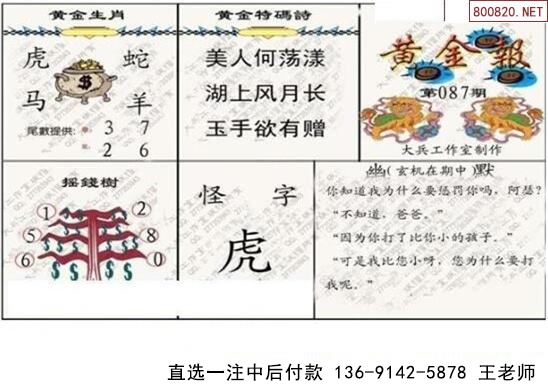 800820.NET
黄金生肖
虎 蛇
马 羊
尾數提供: 3 7
2 6
黄金特碼詩
美人何荡漾
湖上风月长
玉手欲有赠
黄金報
第087期
大兵工作室制作
摇錢樹
1 2
5 8
6 0
怪 字
虎
幽(玄机在期中)默
你知道我为什么要惩罚你吗，阿瑟?
“不知道，爸爸。”
“因为你打了比你小的孩子。”
“可是我比您小呀，您为什么要打
我呢。”
直选一注中后付款 136-9142-5878 王老师